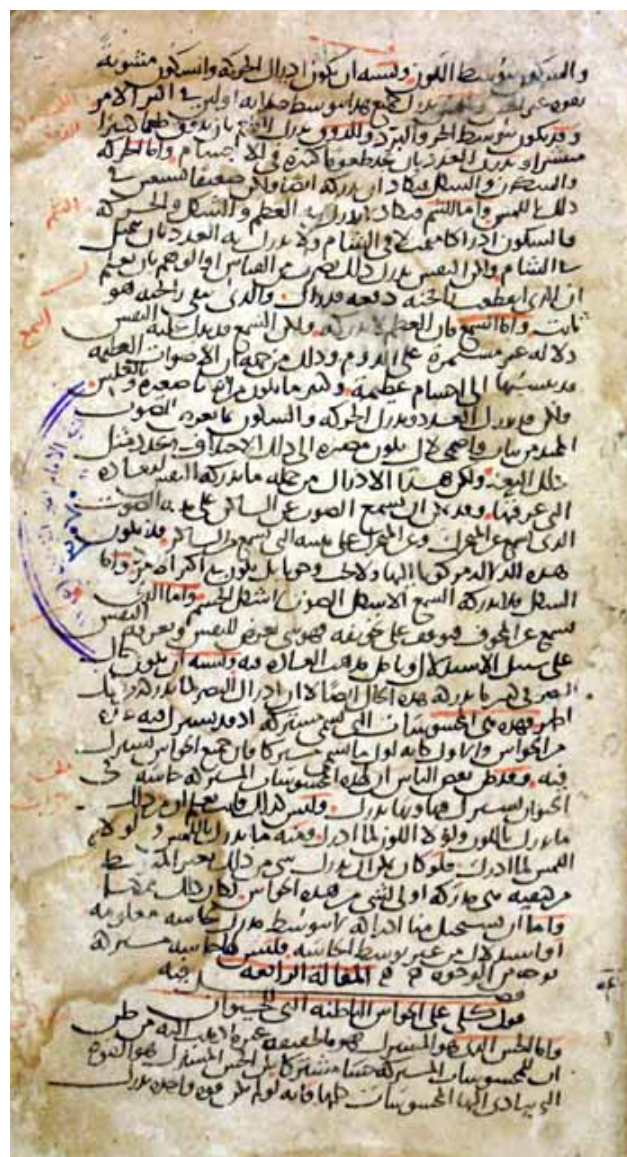 والسكون بتوسط اللون ويشبه ان يكون ادراك الحركة والسكون مشوبة
بقوة غير الحس واللمس يدرك جميع هذا بتوسط صلابة او لين في اكثر الامر
وقد يكون بتوسط الحر والبرد والذوق يدرك العظم بان يذوق طعما كثيرا
منتشرا ويدرك العدد بان يجد طعوما كثيرة في الاجسام واما الحركة
والسكون والشكل فيكاد ان يدركه ايضا ولكن ضعيفا يستعين في
ذلك باللمس واما الشم فيكاد لا يدرك به العظم والشكل والحركة
والسكون ادراكا متمثلا في الشام ولا يدرك به العدد بان يتمثل
في الشام ولكن النفس يدرك ذلك بضرب من القياس او الوهم بان يعلم
ان الذي انقطعت رائحته دفعة قد زال والذي تبقى رائحته هو
ثابت واما السمع فان العظم لا يدركه ولكن السمع قد يدل عليه النفس
دلالة غير مستمرة على الدوام وذلك من جهة ان الاصوات العظيمة
قد ينسبها الى اجسام عظيمة وكثيرا ما تكون من اشيا صغيرة وبالعكس
ولكن قد يدرك العدد ويدرك الحركة والسكون بما يعرض للصوت
الممتد من ثبات واضمحلال يكون مصيره الى ذلك الاختلاف في تحدد مثل
ذلك البعد ولكن هذا الادراك من جملة ما تدركه النفس للعادة
التي عرفتها وقد يمكن ان يسمع الصوت عن الساكن على هيئة الصوت
الذي يسمع عن المتحرك وعن المتحرك على هيئة التي تسمع عن الساكن فلا يكون
هذه الدلالة مركونا اليها ولا يجب وجوبا بل يكون في اكثر الامر واما
الشكل فلا يدركه السمع الا شكل الصوت لا شكل الجسم واما الذي
يسمع عن المجوف فيوقف على تجويفه فهو شي يعرض للنفس وتعرفه النفس
على سبيل الاستدلال وتامل مذهب العادة فيه ويشبه ان يكون حال
البصر في كثير مما يدركه هذه الحال ايضا الا ان ادراك البصر لما يدركه من ذلك
اظهر فهذه هي المحسوسات التي تسمى مشتركة اذ قد يشترك فيه عدة
من الحواس والعدد كانه اولى ما يسمى مشتركا فان جميع الحواس تشترك
فيه وقد ظن بعض الناس ان لهذه المحسوسات المشتركة حاسة في
الحيوان تشترك فيها وبها يدرك وليس كذلك فانت تعلم ان من ذلك
ما يدرك باللون ولولا اللون لما ادرك ومنه ما يدرك باللمس ولولا
اللمس لما ادرك فلو كان يمكن ان يدرك شي من ذلك بغير المتوسط
من كيفية هي مدركة اولى لشي من هذه الحواس لكان ذلك ممكنا
واما ان يستحيل منا ادراكه الا بتوسط مدرك بحاسة معلومة
او استدلال من غير توسط الحاسة فليس لها حاسة مشتركة
بوجه من الوجوه المقالة الرابعة
فصل فيه
قول كلي على الحواس الباطنة التي للحيوان
واما الحس الذي هو المشترك فهو بالحقيقة غير ما ذهب اليه من ظن
ان للمحسوسات المشتركة حسا مشتركا بل الحس المشترك هو القوة
التي يتادى اليها المحسوسات كلها فانه لو لم تكن قوة واحدة تدرك